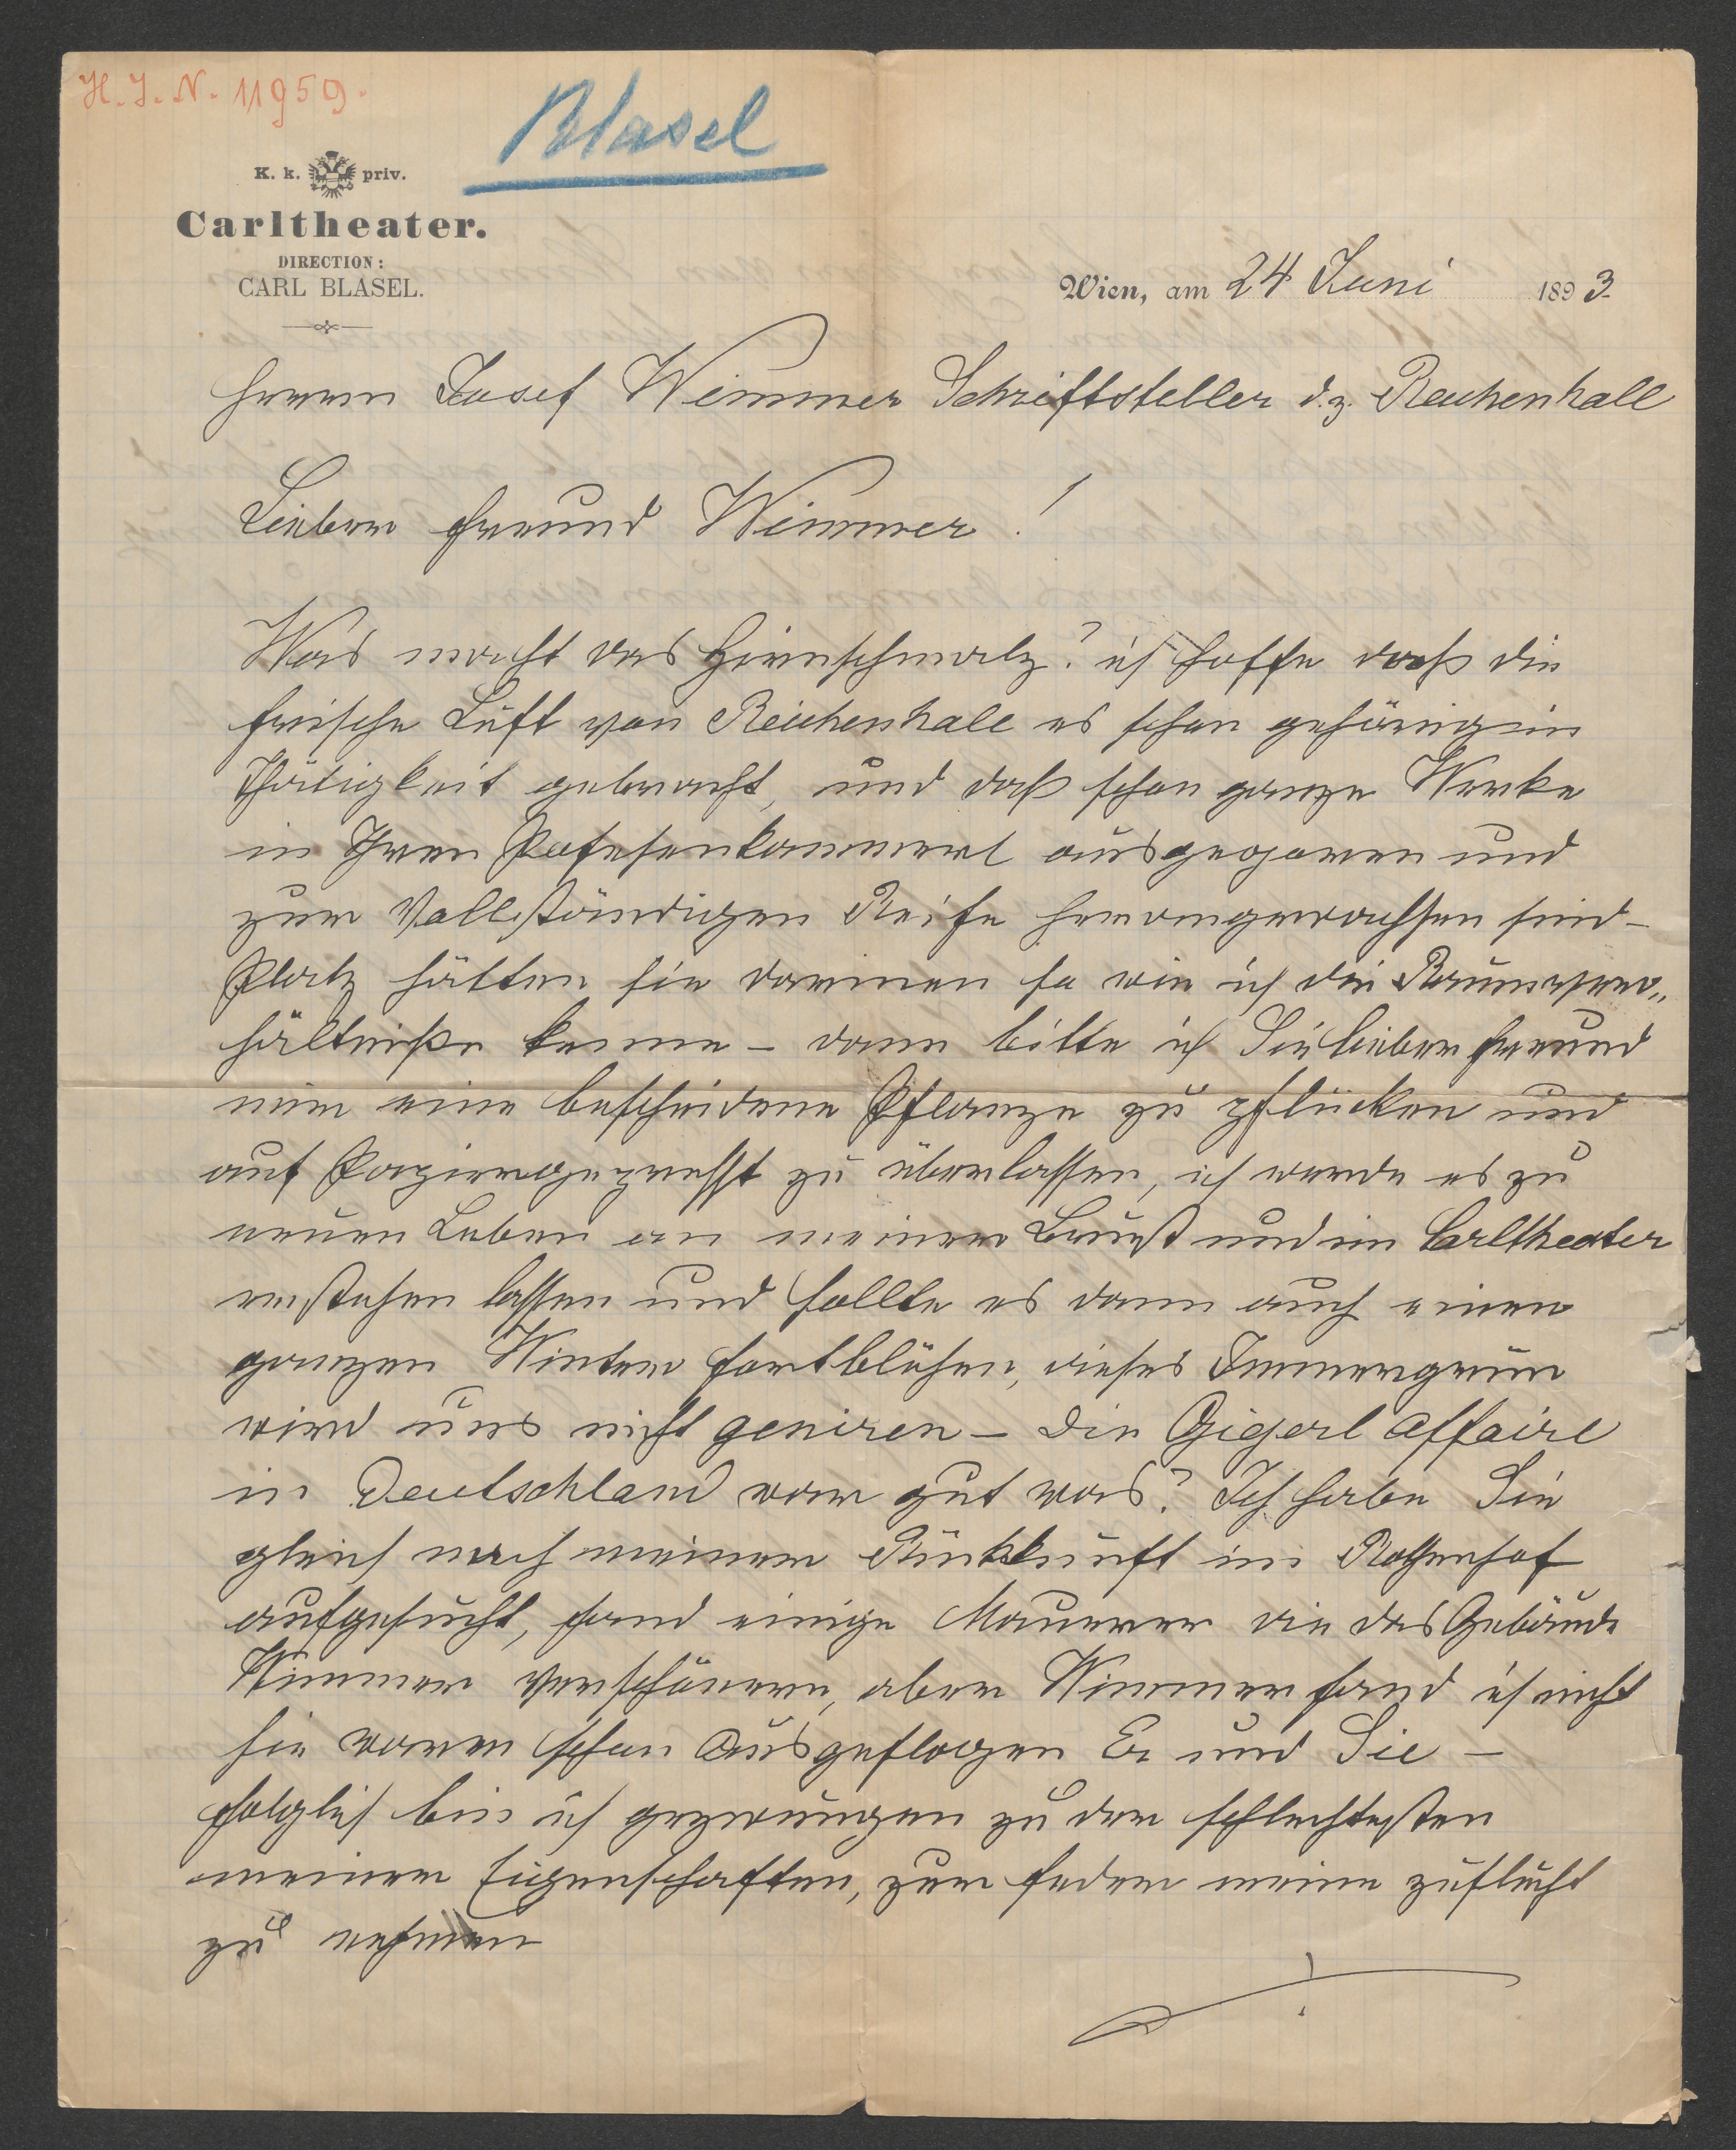 H. I. N. 11959.
Blasel
K. k. priv.
Carltheater.
DIRECTION:
CARL BLASEL.
Wien, am 24 Juni 1893
Herrn Josef Wimmer Schriftsteller d. z. Reichenhall
Lieber Freund Wimmer!
Was macht das Hirnschmalz? ich hoffe daß die
frische Luft von Reichenhall es schon gehörig in
Thätigkeit gebracht, und daß schon ganze Werke
in Ihren Pofesenkammerl ausgegoren und
zur Vollständigen Reife herangewachsen sind –
Platz hätten sie darinnen so wie ich die Raumver„
hältniße kenne – dann bitte ich Sie lieber Freund
nur eine bescheidene Pflanze zu pflücken und
auf Papier gepresst zu überlassen, ich werde es zu
neuen Leben an meiner Brust und im Carltheater
erstehen lassen und sollte es dann auch einen
ganzen Winter fortblühen, dieses Immergrün
wird uns nicht geniren – Die Gigerl affaire
in Deutschland war gut was? Ich habe Sie
gleich nach meiner Rückkunft im
aufgesucht, fand einige Maurer die das Gebäude
Wimmer verschönern, aber Wimmer fand ich nicht
sie waren schon Ausgeflogen Er und Sie –
folglich bin ich gezwungen zu der schlechtesten
meiner Eigenschaften, zur Feder meine Zuflucht
zu nehmen